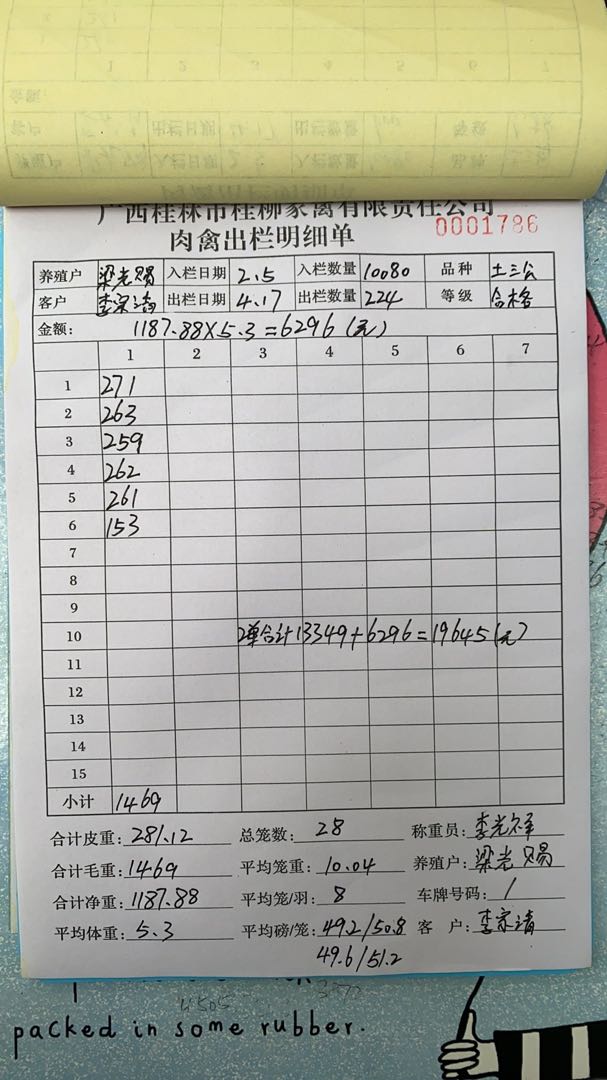 广西桂林市桂柳家禽有限责任公司
肉禽出栏明细单 0001786
养殖户 梁光赐 入栏日期 2.5 入栏数量 10080 品种 土三公
客户 李宗清 出栏日期 4.17 出栏数量 224 等级 合格
金额: 1187.88×5.3=6296(元)
1 2 3 4 5 6 7
1 271
2 263
3 259
4 262
5 261
6 153
7
8
9
10 2单合计13349+6296=19645(元)
11
12
13
14
15
小计 1469
合计皮重: 281.12 总笼数: 28 称重员: 李光祥
合计毛重: 1469 平均笼重: 10.04 养殖户: 梁光赐
合计净重: 1187.88 平均笼/羽: 8 车牌号码: /
平均体重: 5.3 平均磅/笼: 49.2/50.8 客 户: 李宗清
49.6/51.2
packed in some rubber.